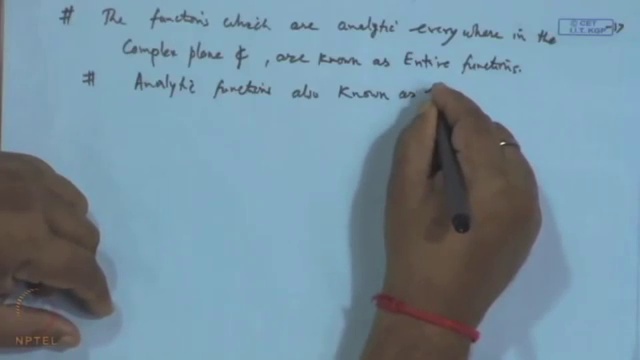 # The functions which are analytic everywhere in the
Complex plane ₵, are known as Entire functions.
# Analytic functions also known as
© CET
I.I.T. KGP
NPTEL